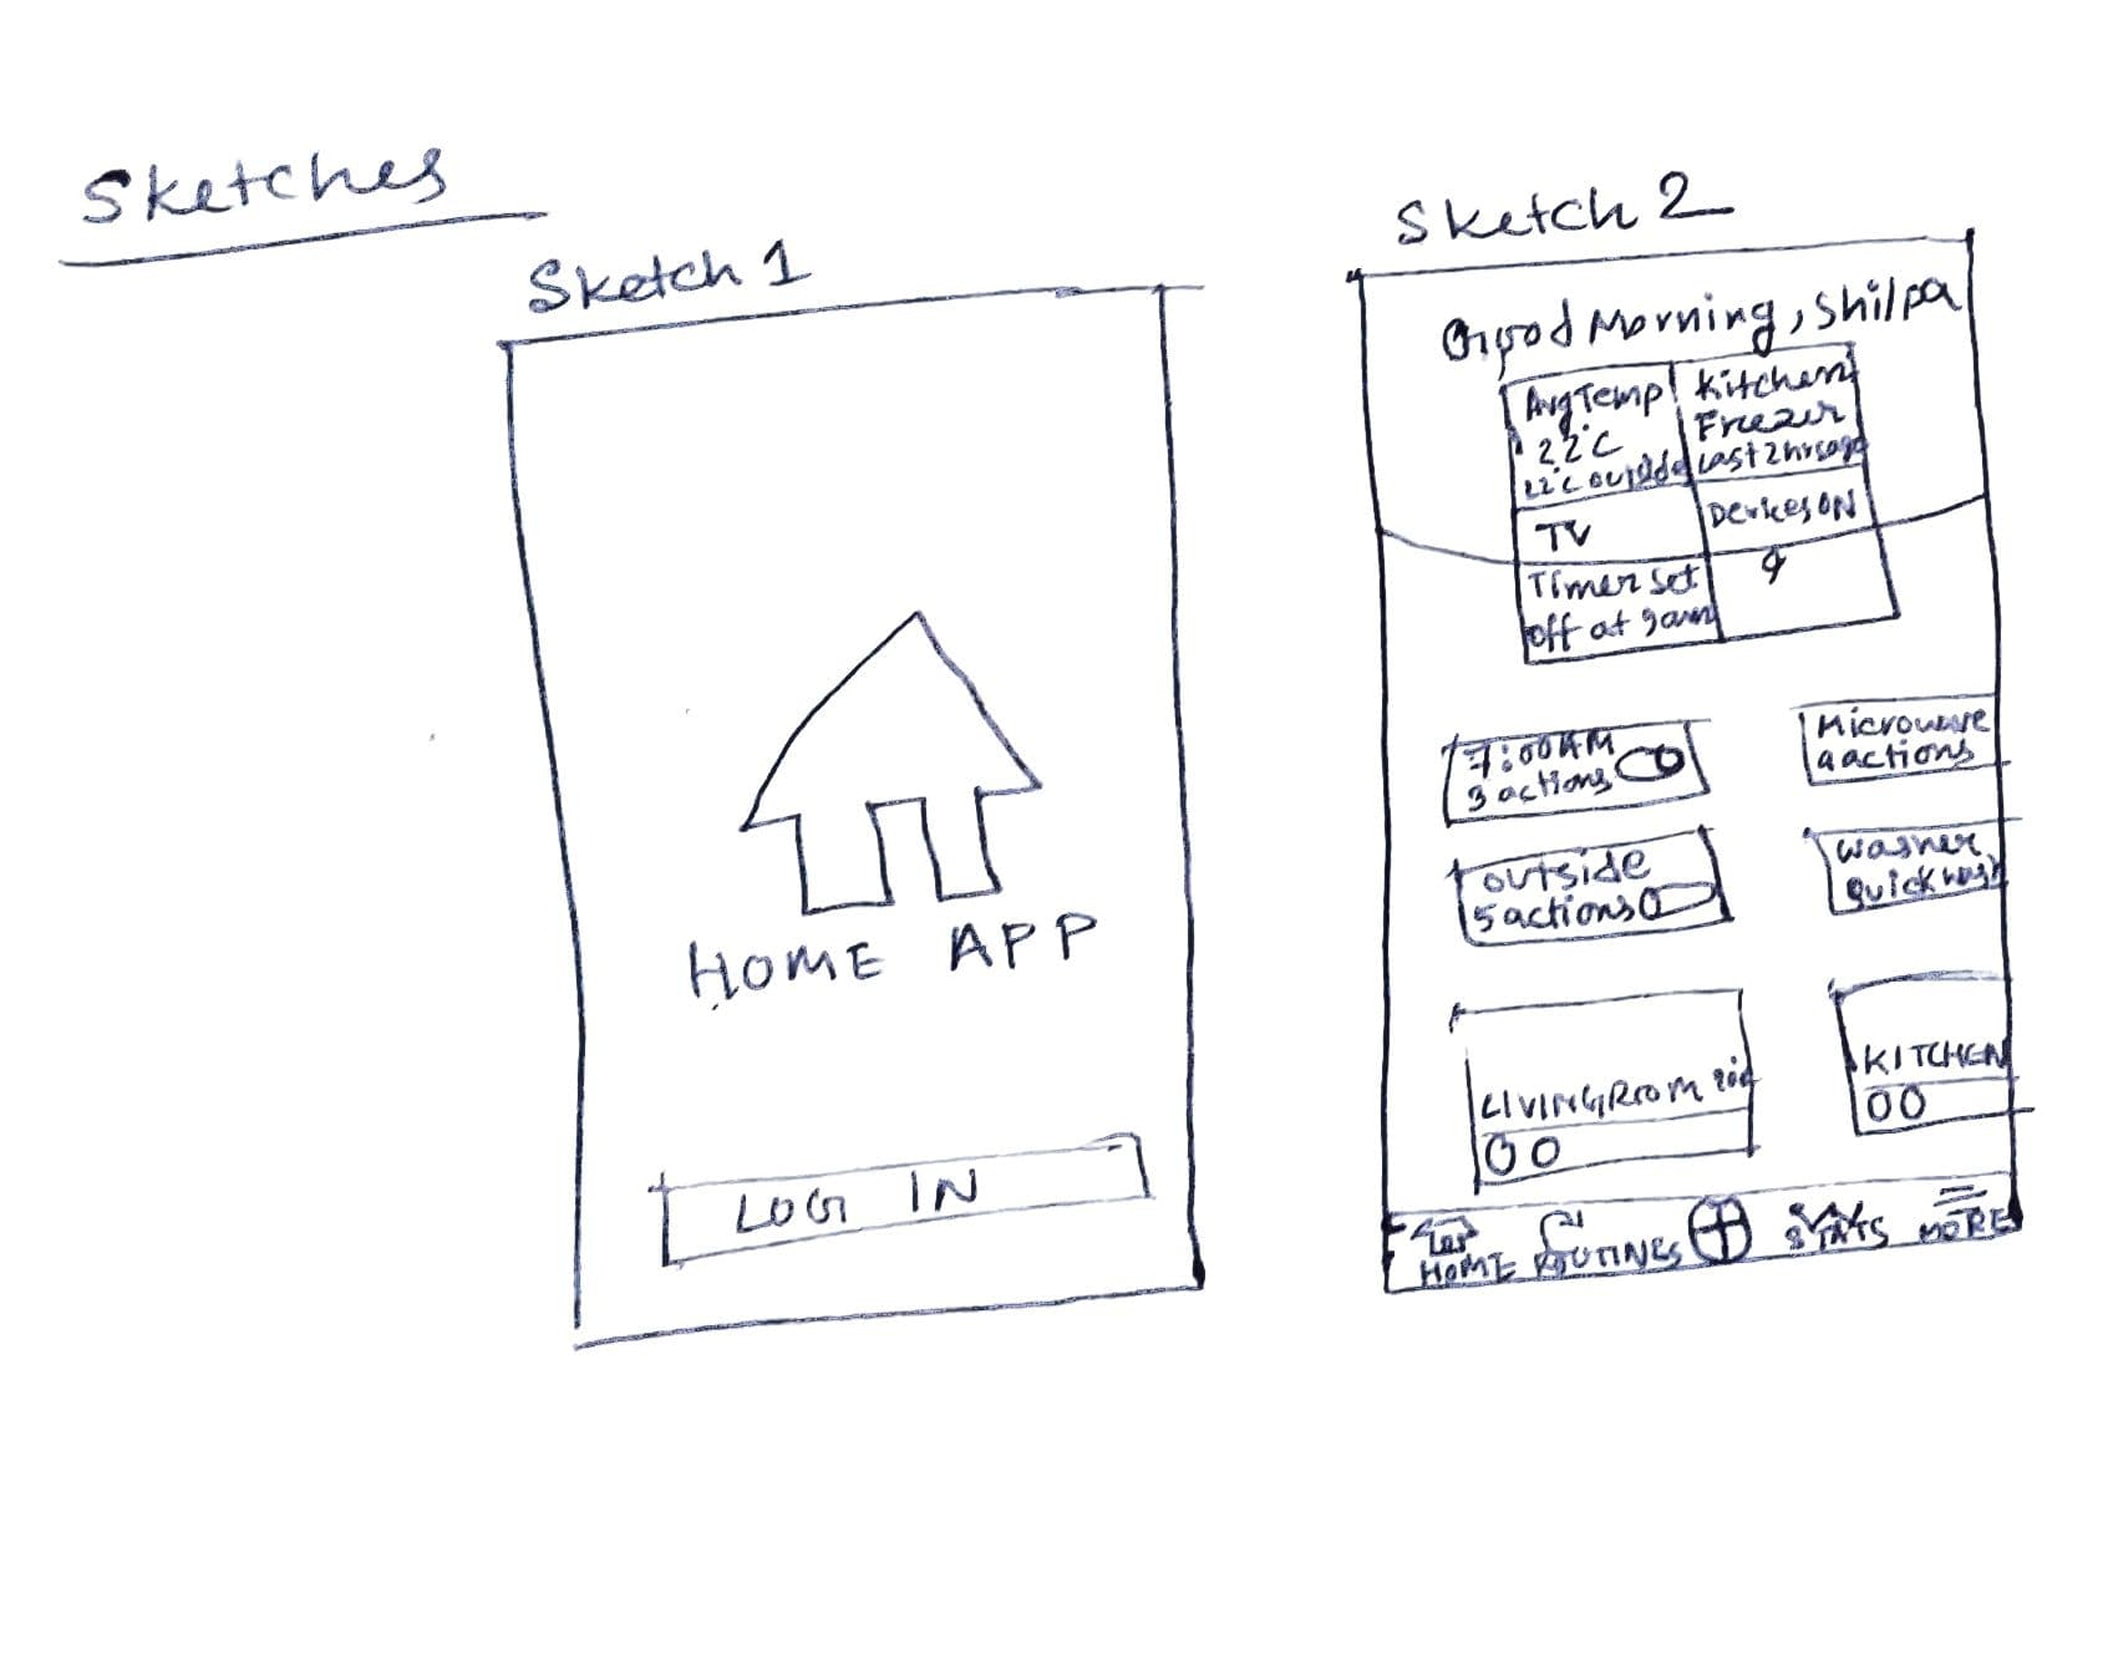 Sketches
Sketch 1
HOME APP
LOG IN
Sketch 2
Good Morning, Shilpa
Avg Temp
22°C
22°C outside
Kitchen
Freezer
Last 2 hrs ago
TV
Timer set
off at 9am
Devices ON
7:00AM
3 actions
Microwave
outside
5 actions
Washer
Quick wash
LIVING ROOM
KITCHEN
HOME
ROUTINES
STATS
MORE